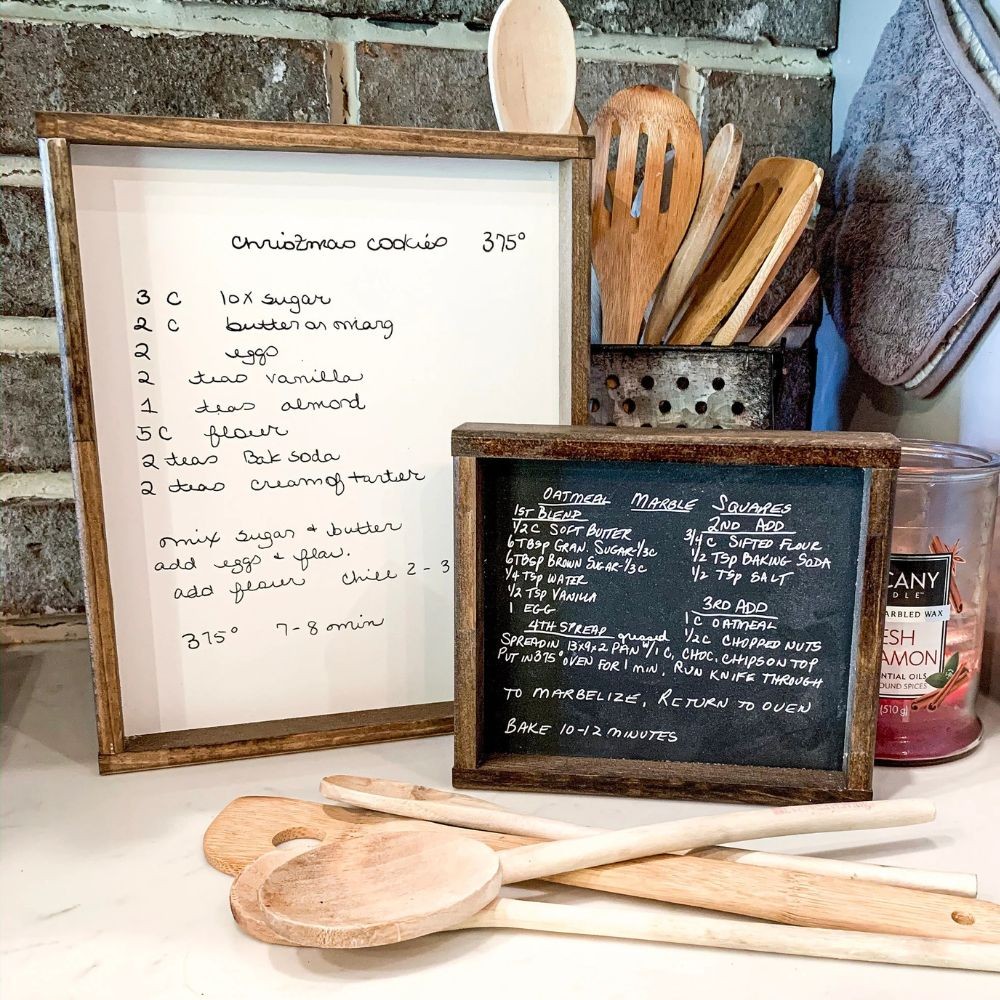 Christmas cookies 375°
3 C 10x sugar
2 C butter or marg
2 eggs
2 teas vanilla
1 teas almond
5 C flour
2 teas Bak soda
2 teas cream of tarter
mix sugar & butter
add eggs & flav.
add flour chill 2-3
375° 7-8 min
OATMEAL MARBLE SQUARES
1ST BLEND
1/2 C SOFT BUTTER
6 TBSP GRAN. SUGAR-1/3C
6 TBSP BROWN SUGAR-1/3C
1/4 TSP WATER
1/2 TSP VANILLA
1 EGG
2ND ADD
3/4 C SIFTED FLOUR
1/2 TSP BAKING SODA
1/2 TSP SALT
3RD ADD
1 C OATMEAL
1/2C CHOPPED NUTS
4TH SPREAD greased
SPREAD IN 13x9x2 PAN W/1 C, CHOC. CHIPS ON TOP
PUT IN 375° OVEN FOR 1 MIN, RUN KNIFE THROUGH
TO MARBELIZE, RETURN TO OVEN
BAKE 10-12 MINUTES
CANY
DLE™
ARBLED WAX
ESH
AMON
NTIAL OILS
OUND SPICES
(510 g)